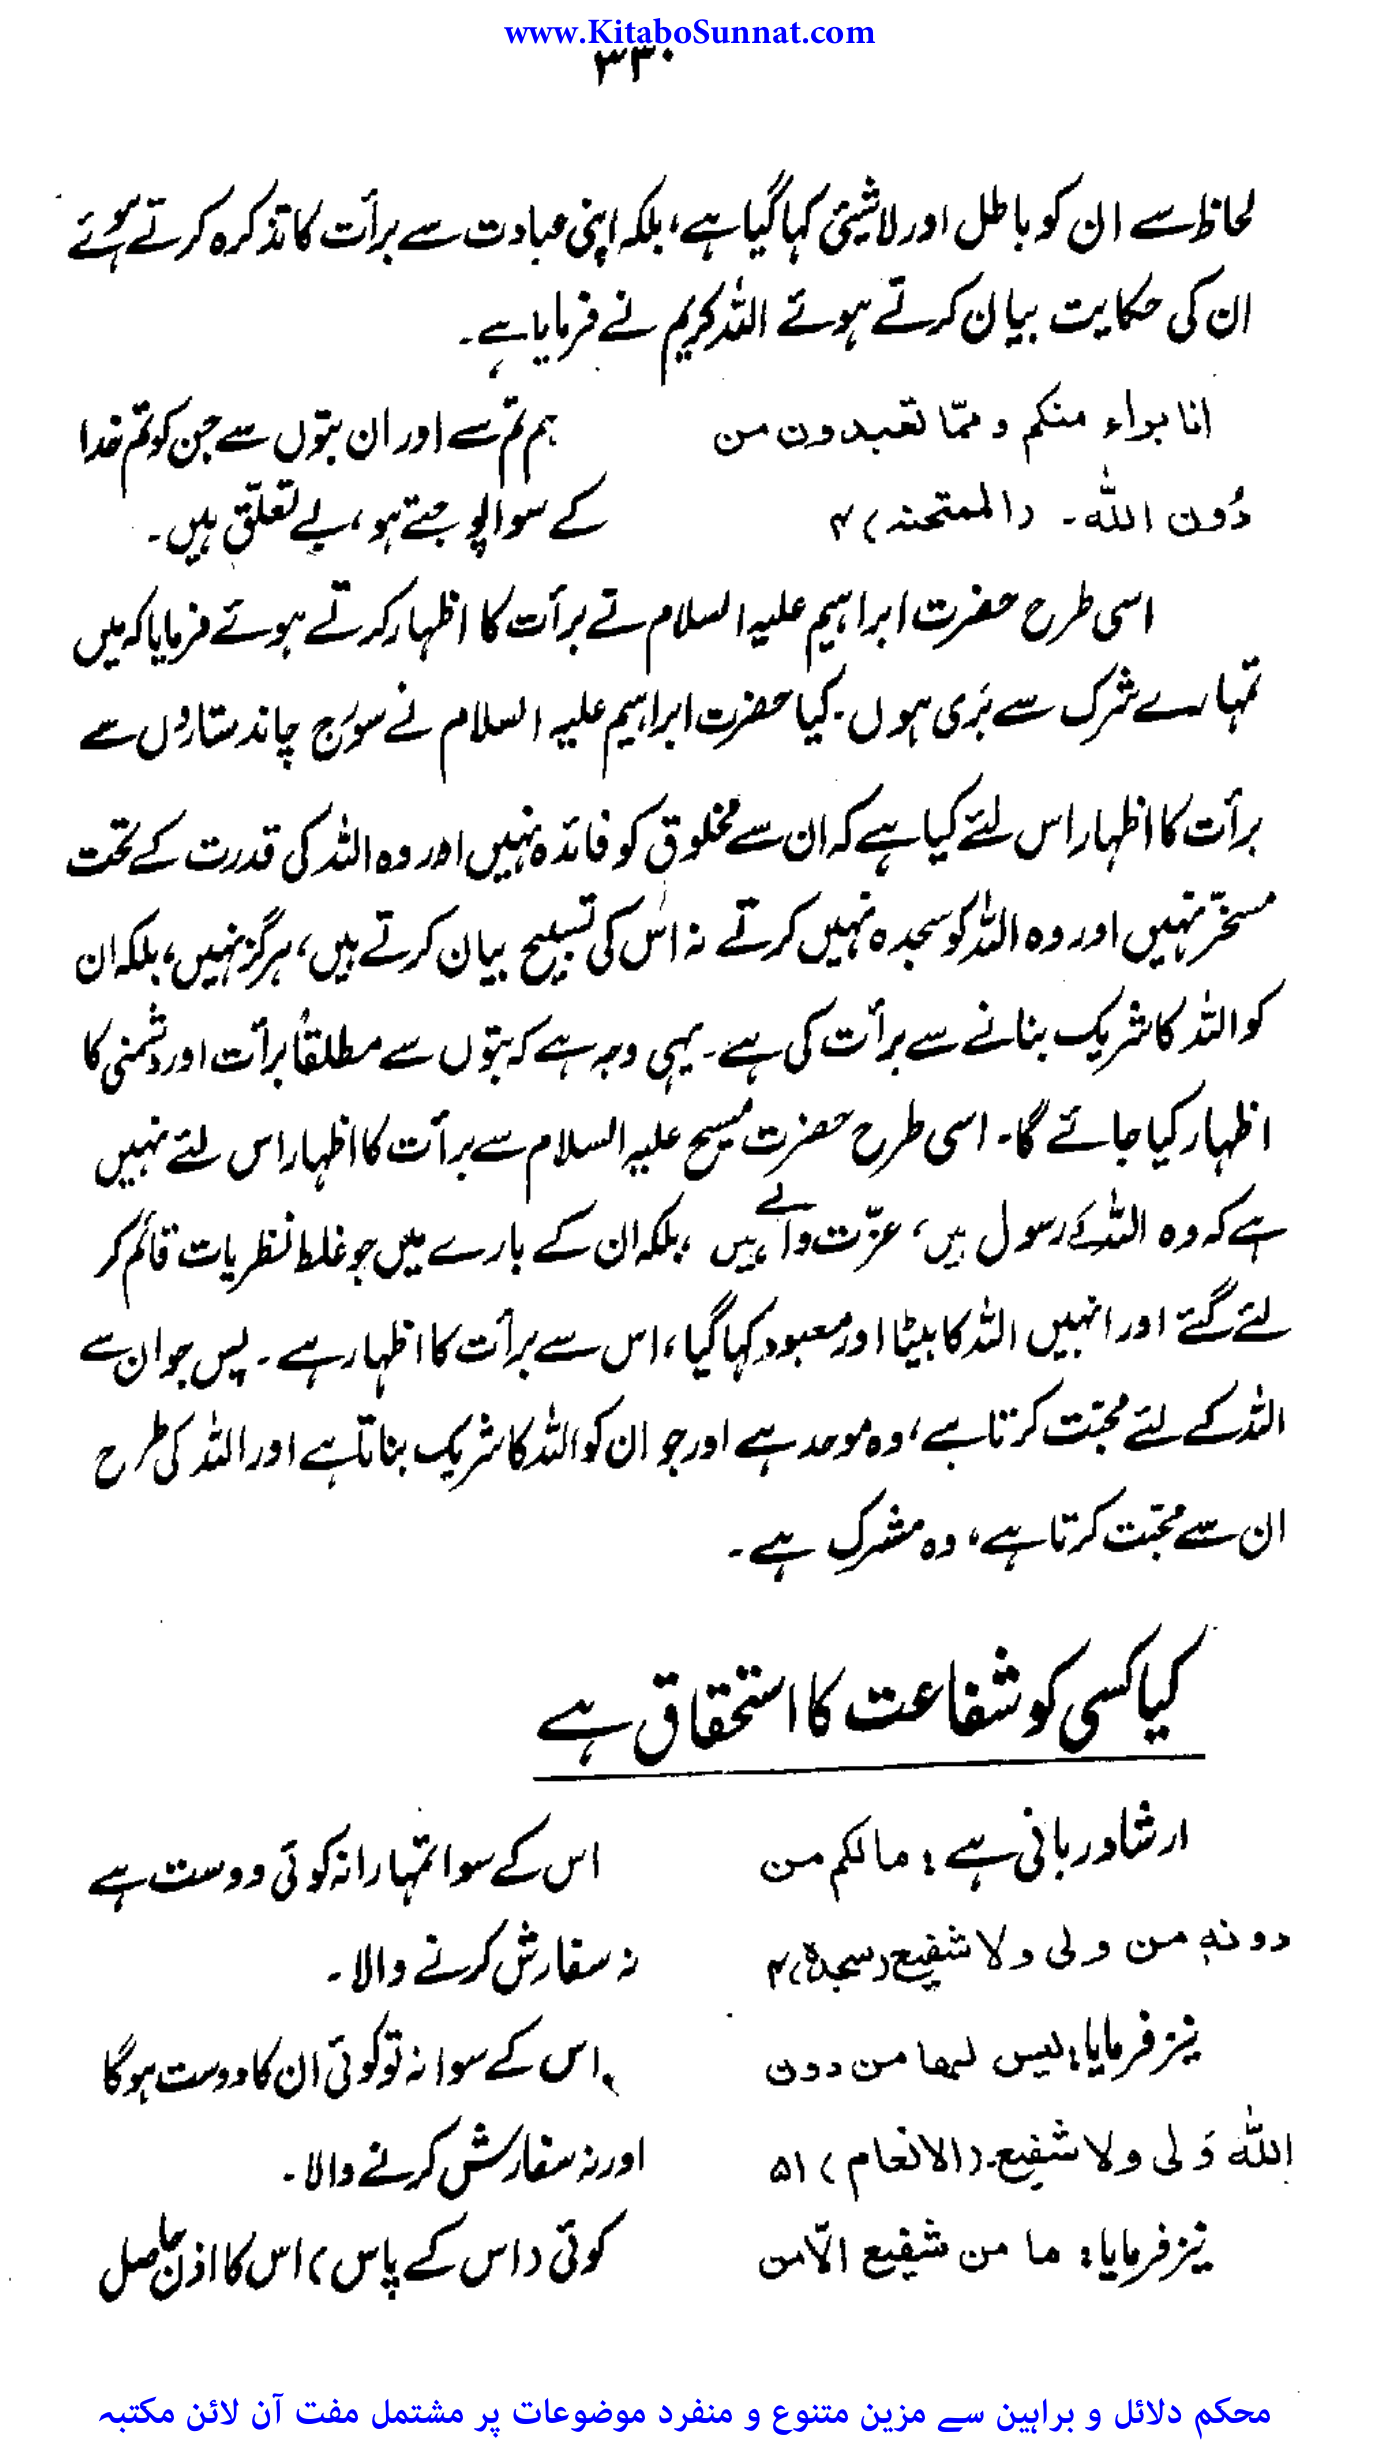 www.KitaboSunnat.com
۳۳۰
لحاظ سے ان کو باطل اور لاشیئ کہا گیا ہے، بلکہ اپنی عبادت سے برأت کا تذکرہ کرتے ہوئے
ان کی حکایت بیان کرتے ہوئے اللہ کریم نے فرمایا ہے۔
انا براء منکم و ممّا تعبدون من
ہم تم سے اور ان بتوں سے جن کو تم خدا
دُون اللہ۔ (الممتحنہ) ۴
کے سوا پوجتے ہو، بے تعلّق ہیں۔
اسی طرح حضرت ابراہیم علیہ السلام نے برأت کا اظہار کرتے ہوئے فرمایا کہ میں
تمہارے شرک سے بَری ہوں۔ کیا حضرت ابراہیم علیہ السلام نے سورج چاند ستاروں سے
برأت کا اظہار اس لئے کیا ہے کہ ان سے مخلوق کو فائدہ نہیں اور وہ اللہ کی قدرت کے تحت
مسخّر نہیں اور وہ اللہ کو سجدہ نہیں کرتے نہ اس کی تسبیح بیان کرتے ہیں، ہرگز نہیں، بلکہ ان
کو اللہ کا شریک بنانے سے برأت کی ہے۔ یہی وجہ ہے کہ بتوں سے مطلقاً برأت اور دشمنی کا
اظہار کیا جائے گا۔ اسی طرح حضرت مسیح علیہ السلام سے برأت کا اظہار اس لئے نہیں
ہے کہ وہ اللہ کے رسول ہیں، عزّت والے ہیں، بلکہ ان کے بارے میں جو غلط نظریات قائم کر
لئے گئے اور انہیں اللہ کا بیٹا اور معبود کہا گیا، اس سے برأت کا اظہار ہے۔ پس جو ان سے
اللہ کے لئے محبّت کرتا ہے، وہ موحد ہے اور جو ان کو اللہ کا شریک بناتا ہے اور اللہ کی طرح
ان سے محبّت کرتا ہے، وہ مشرک ہے۔
کیا کسی کو شفاعت کا استحقاق ہے
ارشاد ربانی ہے: مالکم من
اس کے سوا تمہارا نہ کوئی دوست ہے
دونہ من ولی ولا شفیع (سجدۃ) ۴
نہ سفارش کرنے والا۔
نیز فرمایا: لیس لہا من دون
اس کے سوا نہ تو کوئی ان کا دوست ہوگا
اللہ وَلی ولا شفیع۔ (الانعام) ۵۱
اور نہ سفارش کرنے والا۔
نیز فرمایا: ما من شفیع الّا من
کوئی (اس کے پاس) اس کا اذن حاصل
محکم دلائل و براہین سے مزین متنوع و منفرد موضوعات پر مشتمل مفت آن لائن مکتبہ